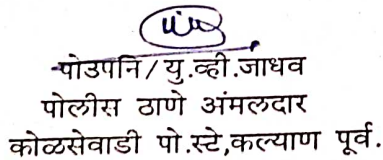 पोउपनि/यु.व्ही.जाधव
पोलीस ठाणे अंमलदार
कोळसेवाडी पो.स्टे,कल्याण पूर्व.